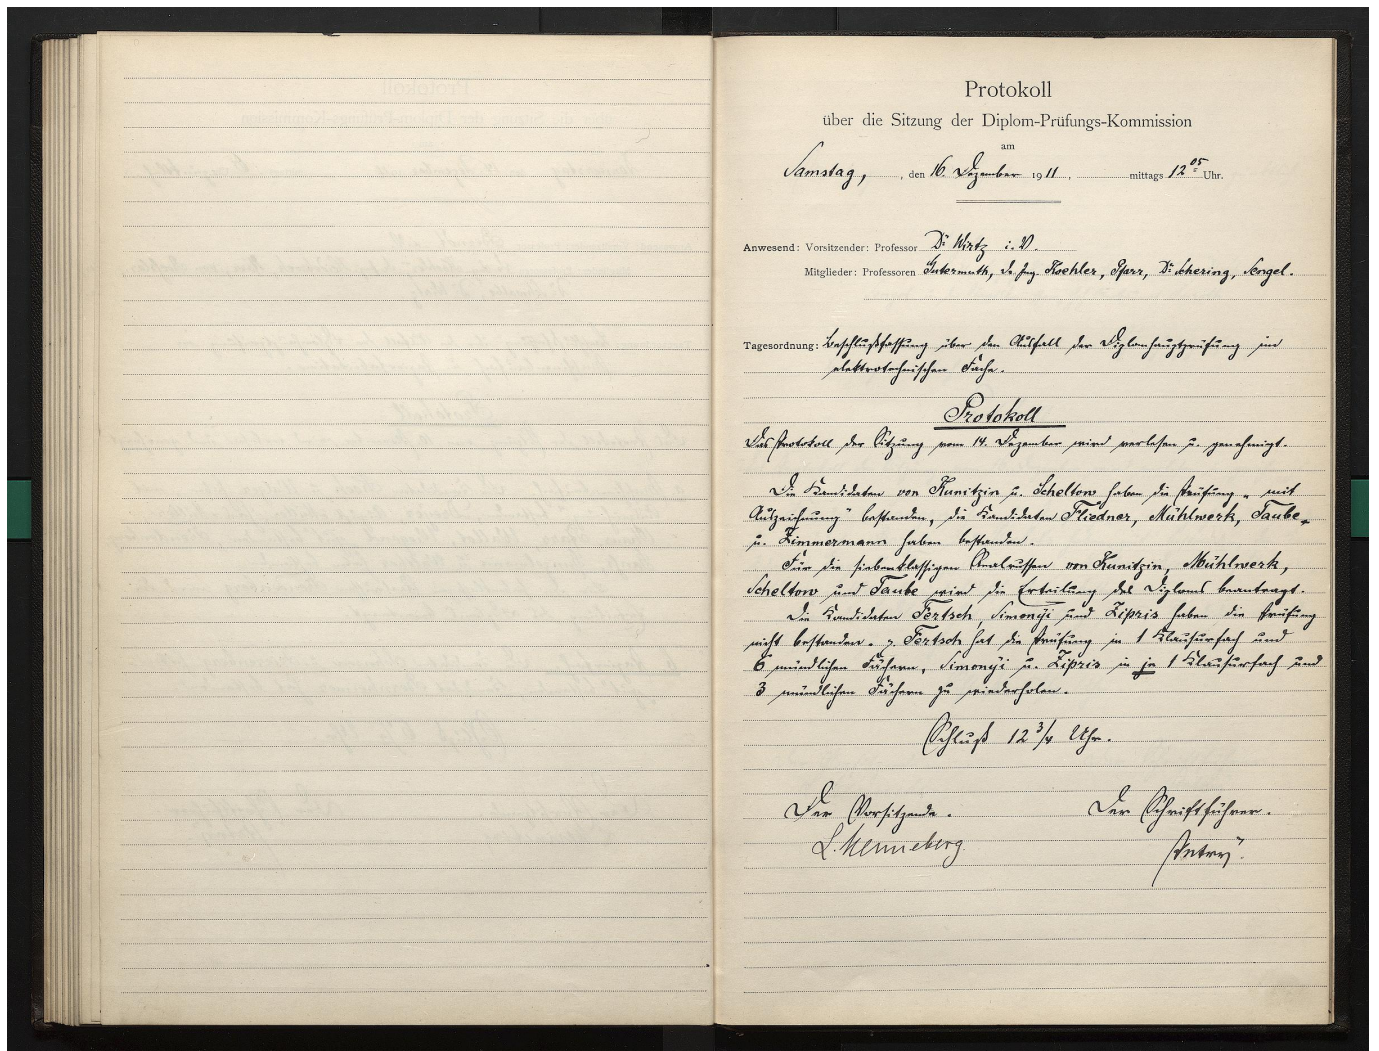 Protokoll
über die Sitzung der Diplom-Prüfungs-Kommission
am
Samstag, , den 16. Dezember 1911 , mittags 12 05 Uhr.
Anwesend: Vorsitzender: Professor Dr Wirtz i. V.
Mitglieder: Professoren Gutermuth, Dr. Ing. Koehler, Pfarr, Dr Schering, Sengel.
Tagesordnung: Beschlußfassung über den Ausfall der Diplomhauptprüfung im
elektrotechnischen Fache.
Protokoll
Das Protokoll der Sitzung vom 14. Dezember wird verlesen u. genehmigt.
Die Kandidaten von Kunitzin u. Scheltow haben die Prüfung „mit
Auszeichnung" bestanden, die Kandidaten Fliedner, Mühlwerk, Taube
u. Zimmermann haben bestanden.
Für die siebenklassigen Realrussen von Kunitzin, Mühlwerk,
Scheltow und Taube wird die Erteilung des Diploms beantragt.
Die Kandidaten Fertsch, Simonyi und Zipris haben die Prüfung
nicht bestanden. Fertsch hat die Prüfung in 1 Klausurfach und
6 mündlichen Fächern, Simonyi u. Zipris in je 1 Klausurfach und
3 mündlichen Fächern zu wiederholen.
Schluß 12 3/4 Uhr.
Der Vorsitzende. Der Schriftführer.
L. Henneberg. Petry.